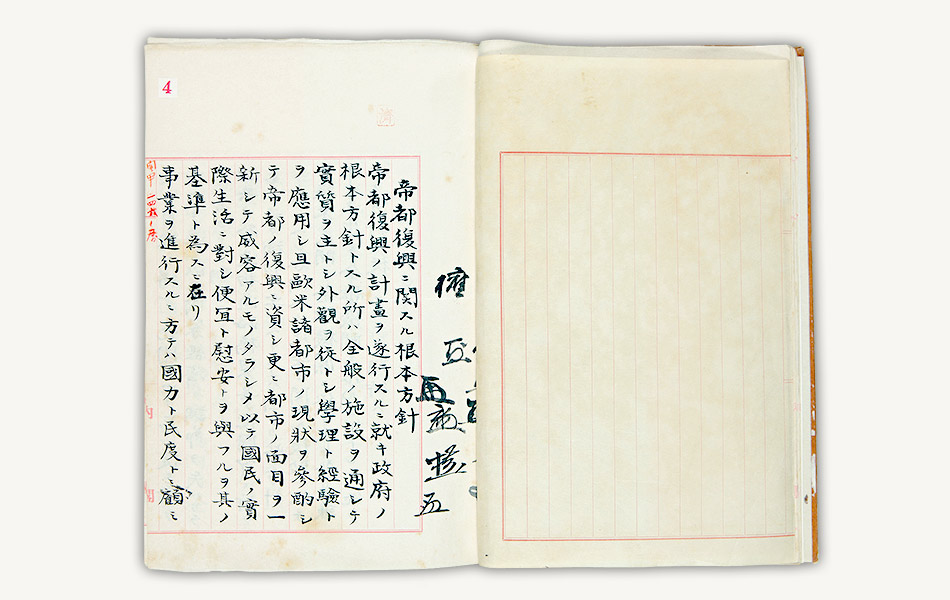 4
帝都復興ニ関スル根本方針
帝都復興ノ計畫ヲ遂行スルニ就キ政府ノ
根本方針トスル所ハ全般ノ施設ヲ通シテ
實質ヲ主トシ外觀ヲ從トシ學理ト經驗ト
ヲ應用シ且歐米諸都市ノ現狀ヲ參酌シ
テ帝都ノ復興ニ資シ更ニ都市ノ面目ヲ一
新シテ威容アルモノタラシメ以テ國民ノ實
際生活ニ對シ便冝ト慰安トヲ與フルヲ其ノ
基準ト為スニ在リ
事業ヲ進行スルニ方テハ國力ト民度トニ顧ミ
内
閣